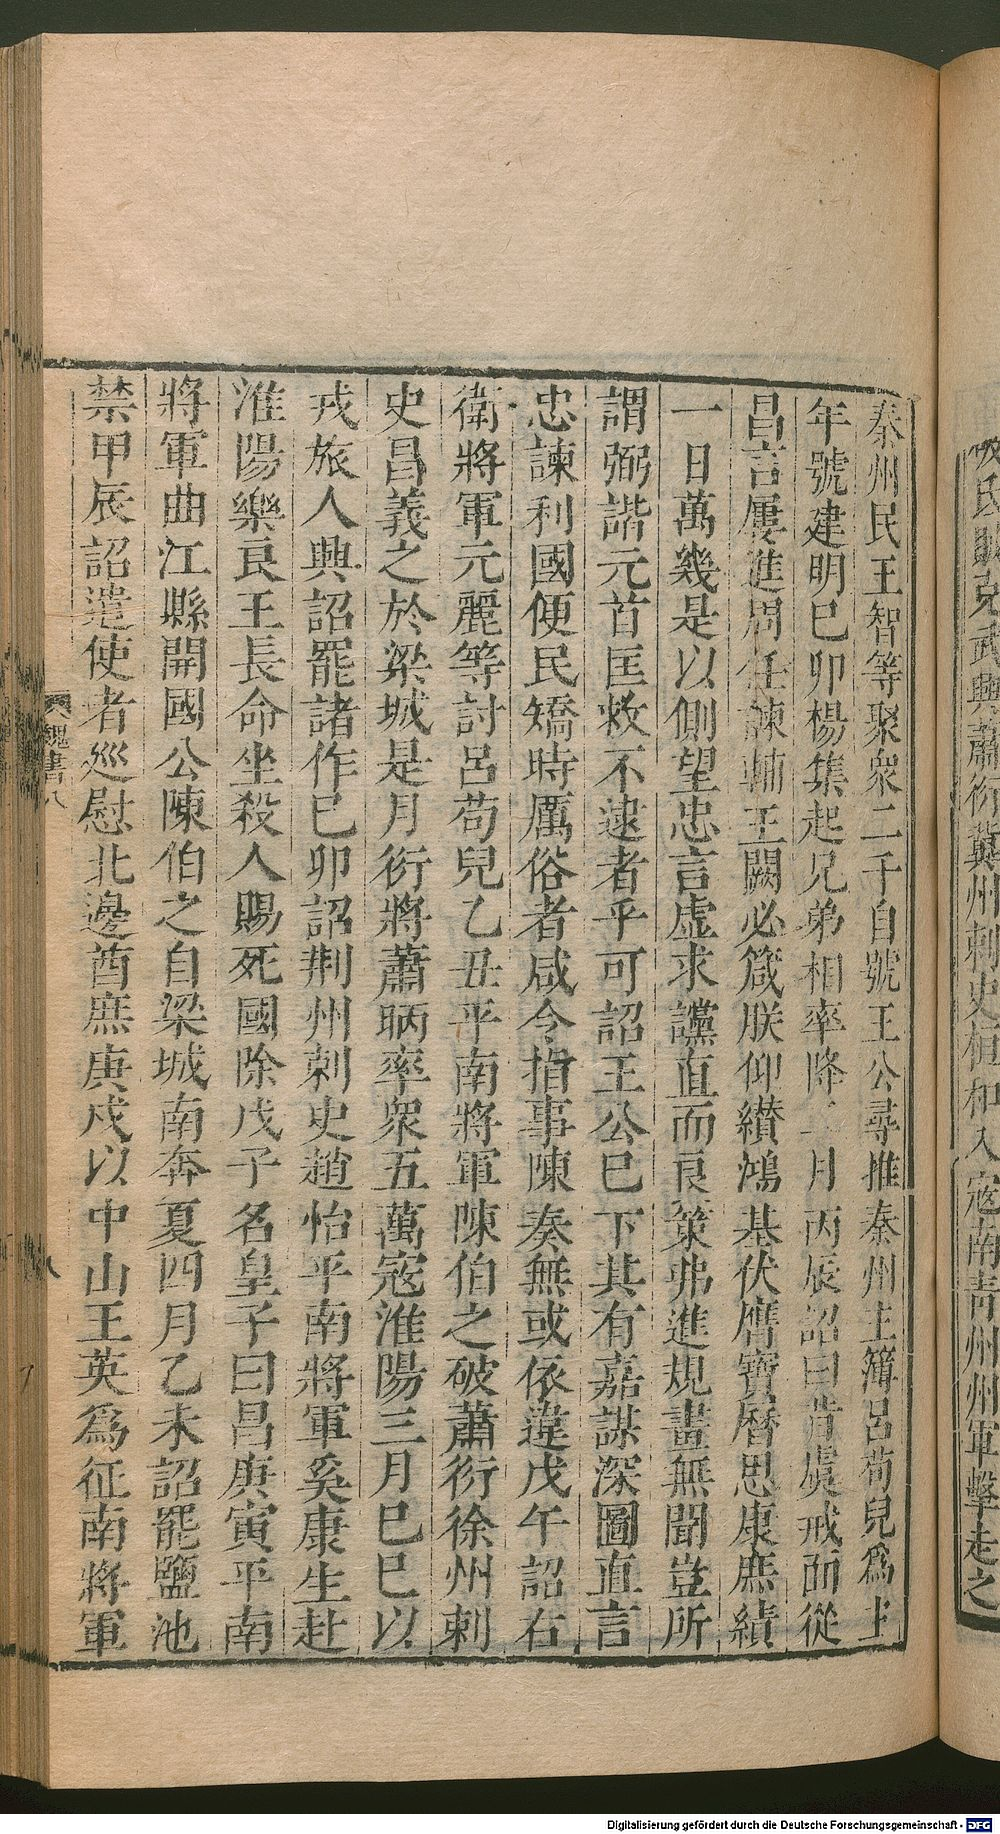 氐賊克武興蕭衍冀州刺史桓和入寇南青州州軍擊走之
秦州民王智等聚衆二千自號王公尋推秦州主簿呂苟兒爲主
年號建明巳卯楊集起兄弟相率降二月丙辰詔曰昔虞戒面從
昌言屢進周任諫輔王闕必箴朕仰纉鴻基伏膺寶曆思康庶績
一日萬幾是以側望忠言虛求讜直而良策弗進規畫無聞豈所
謂弼諧元首匡救不逮者乎可詔王公巳下其有嘉謀深圖直言
忠諫利國便民矯時厲俗者咸令指事陳奏無或依違戊午詔右
衛將軍元麗等討呂苟兒乙丑平南將軍陳伯之破蕭衍徐州刺
史昌義之於梁城是月衍將蕭昞率衆五萬寇淮陽三月巳巳以
戎旅大興詔罷諸作巳卯詔荆州刺史趙怡平南將軍奚康生赴
淮陽樂良王長命坐殺人賜死國除戊子名皇子曰昌庚寅平南
將軍曲江縣開國公陳伯之自梁城南奔夏四月乙未詔罷鹽池
禁甲辰詔遣使者巡慰北邊酋庶庚戌以中山王英爲征南將軍
魏書八
八
Digitalisierung gefördert durch die Deutsche Forschungsgemeinschaft - DFG